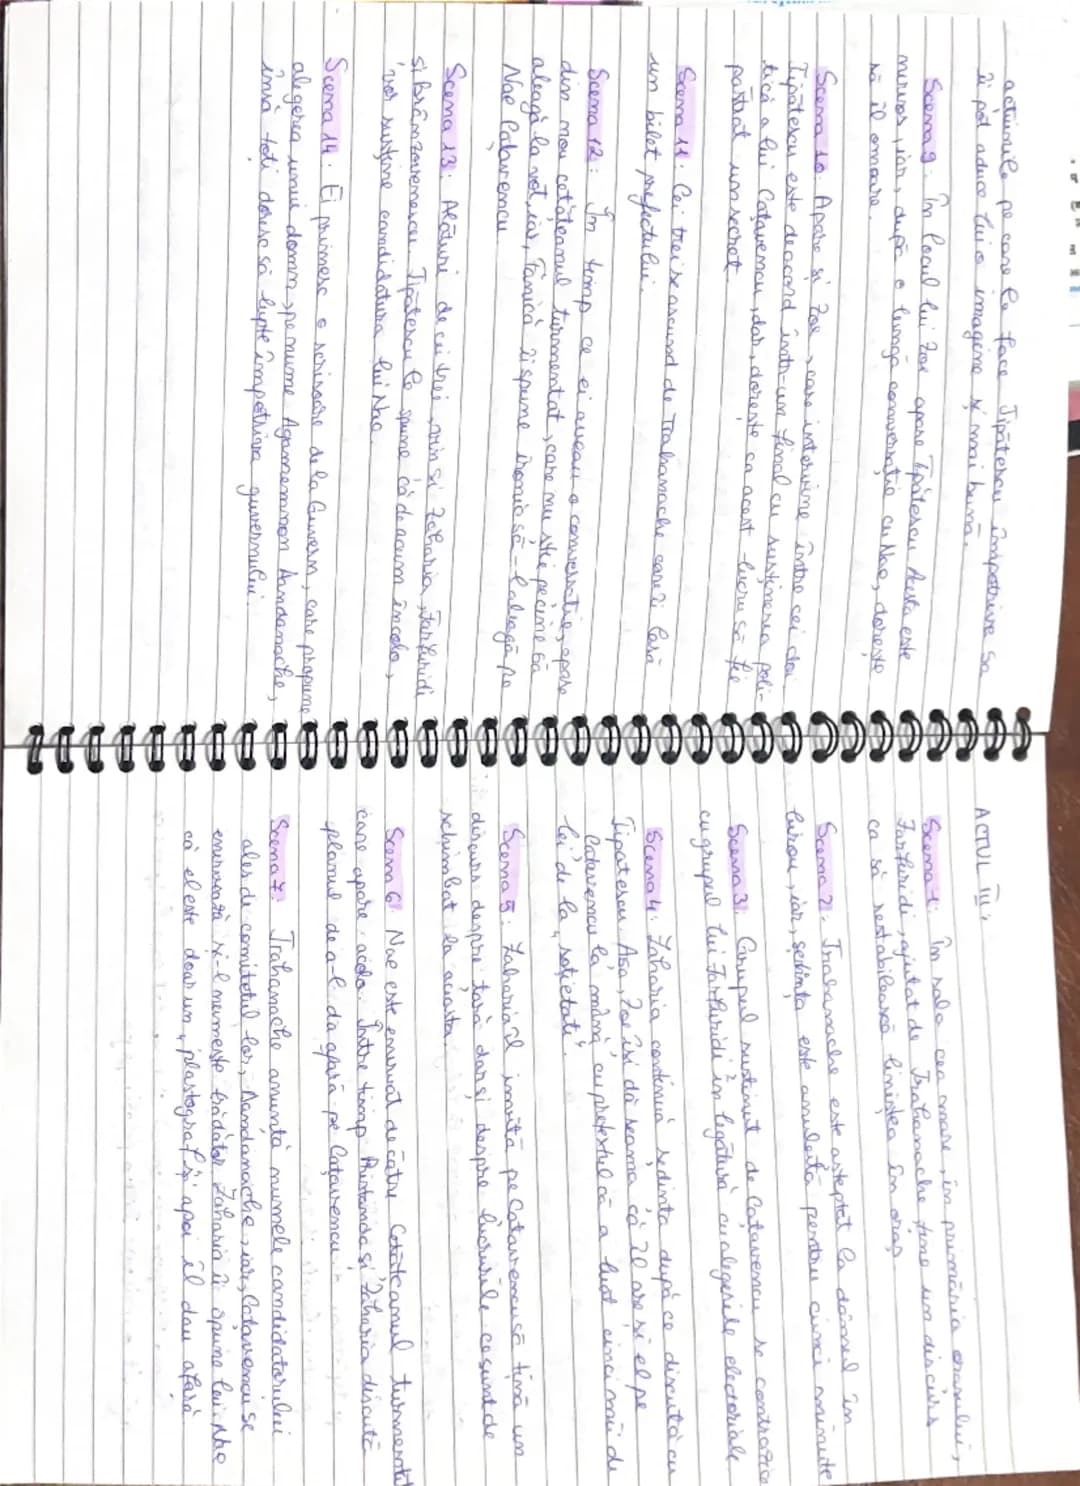 acțiunile pe care le face Tipătescu împotriva sa
îi pot aduce lui o imagine și mai bună.
Scena 9: În locul lui Zoe apare Tipătescu. Acesta este
nervos, iar, după o lungă conversație cu Nae, dorește
să îl omoare.
Scena 10: Apare și Zoe, care intervine între cei doi
Tipătescu este deacord într-un final cu susținerea poli-
tică a lui Cațavencu, dar, dorește ca acest lucru să fie
păstrat un secret.
Scena 11: Cei trei se ascund de Trahanache care îi lasă
un bilet prefectului.
Scena 12: În timp ce ei aveau o conversație, apare
din nou cetățeanul turmentat, care nu știe pe cine să
aleagă la vot, iar, Fănică îi spune ironic să-l aleagă pe
Nae Cațavencu.
Scena 13: Alături de cei trei, vin și Zaharia, Farfuridi
și Brânzovenescu. Tipătescu le spune că de acum încolo,
vor susține candidatura lui Nae.
Scena 14: Ei primesc o scrisoare de la Guvern, care propune
alegerea unui domn, pe nume Agamemnon Dandanache,
însă toți doresc să lupte împotriva guvernului.
ACTUL III.
Scena 1: În sala cea mare, în primăria orașului,
Farfuridi, ajutat de Trahanache ține un discurs
ca să restabilească liniștea în oraș.
Scena 2: Trahanache este așteptat la dânsul în
birou, iar, ședința este anulată pentru cinci minute
Scena 3: Grupul susținut de Cațavencu se contrazice
cu grupul lui Farfuridi în legătură cu alegerile electorale
Scena 4: Zaharia continuă ședința după ce discută cu
Tipătescu. Așa, Zoe își dă seama că îl are și el pe
Cațavencu la mână, cu pretextul că a luat cinci mii de
lei de la „soțietate".
Scena 5: Zaharia îl invită pe Cațavencu să țină un
discurs despre țară dar și despre lucrurile ce sunt de
schimbat la aceasta.
Scena 6: Nae este enervat de către Cetățeanul turmentat
care apare acolo. Între timp Pristanda și Zaharia discută
planul de a-l da afară pe Cațavencu.
Scena 7: Trahanache anunță numele candidatului
ales de comitetul lor, Dandanache, iar, Cațavencu se
enervează și-l numește trădător. Zaharia îi spune lui Nae
că el este doar un „plastograf" și apoi îl dau afară